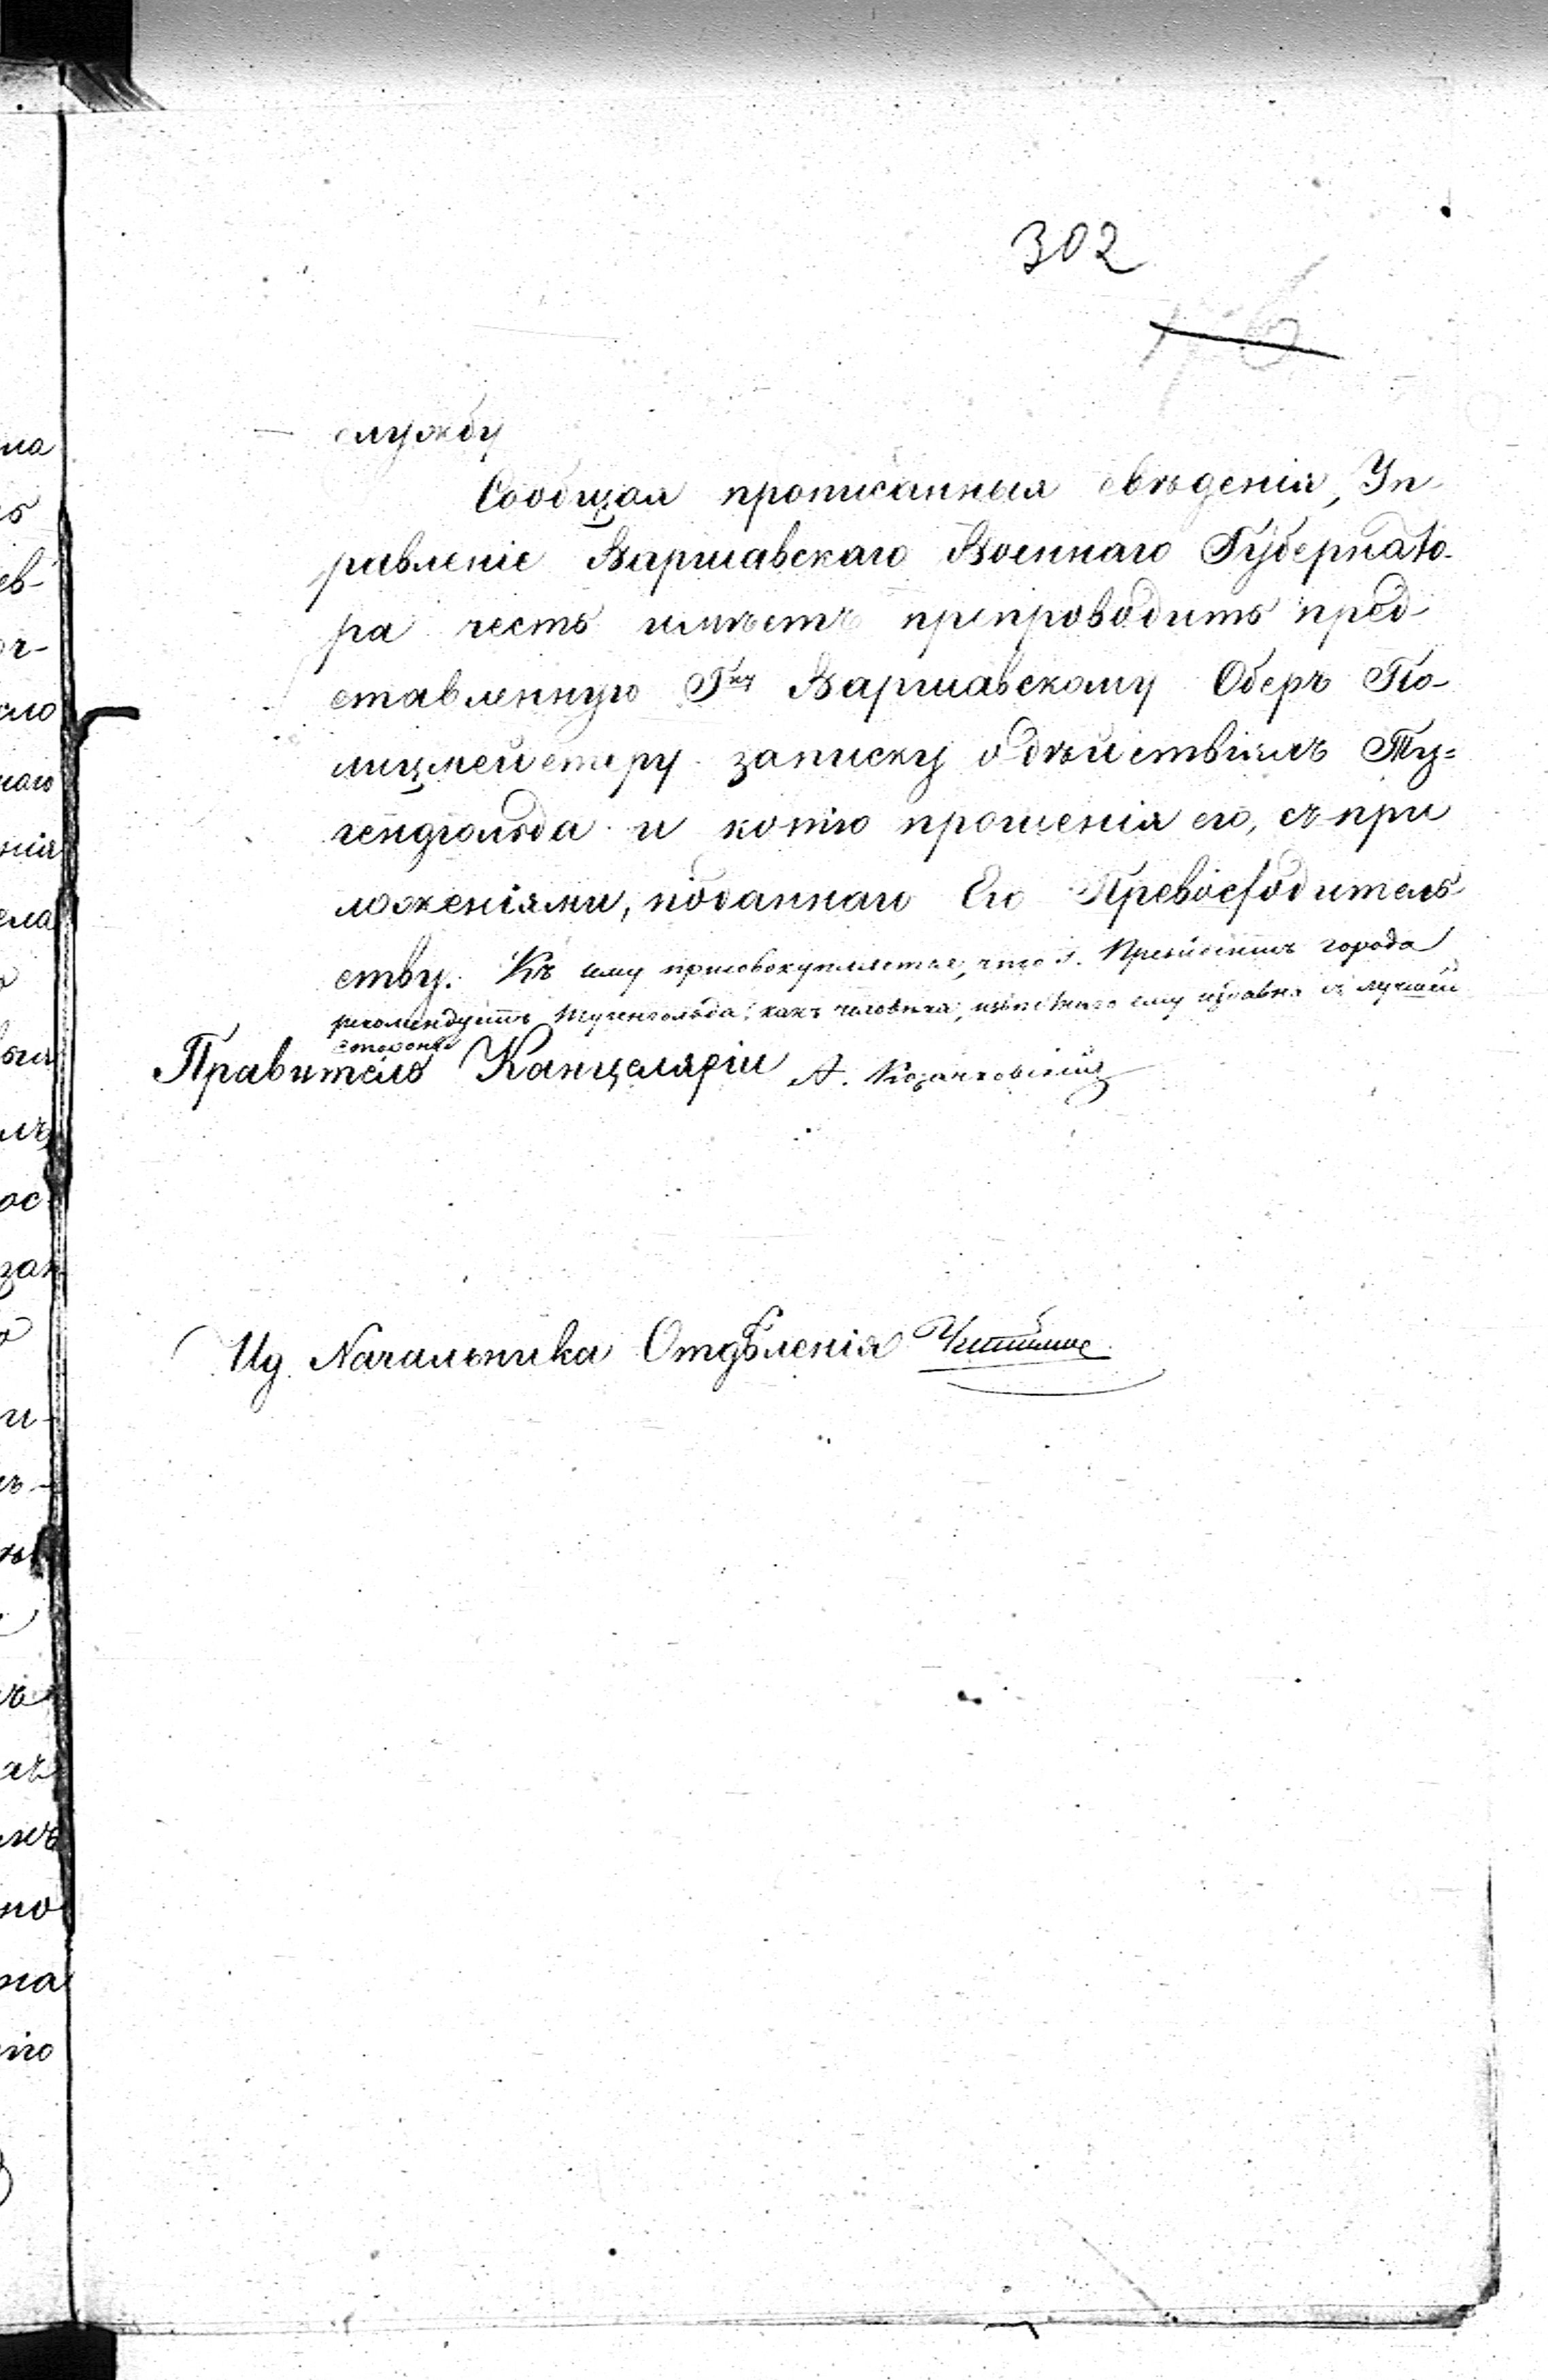 302
службу
Сообщая прописанныя свѣденія, Уп-
равленіе Варшавскаго Военнаго Губернато-
ра честь имѣетъ препроводить пред-
ставленную Гну Варшавскому Оберъ По-
лицмейстеру записку о дѣйствіяхъ Ту=
гендгольда и копію прошенія его, съ при
ложеніями, поданнаго Его Превосходитель
ству. Къ сему присовокупляется, что г. Президентъ города
рекомендуетъ Тугенгольда, какъ человѣка, извѣстнаго ему издавна съ лучшей
стороны
Правитель Канцеляріи А.
Ид. Начальника Отдѣленія